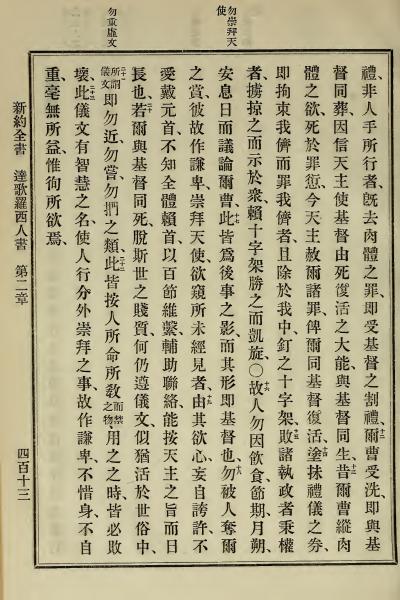 勿崇拜天使
勿重虛文
禮、非人手所行者、旣去肉體之罪、卽受基督之割禮、十二爾曹受洗、卽與基
督同葬、因信天主使基督由死復活之大能、與基督同生、十三昔爾曹縱肉
體之欲、死於罪愆、今天主赦爾諸罪、俾爾同基督復活、十四塗抹禮儀之券、
卽拘束我儕而罪我儕者、且除於我中、釘之十字架、十五敗諸執政者秉權
者、擄掠之而示於衆、賴十字架勝之而凱旋、〇十六故人勿因飲食、節期、月朔、
安息日、而議論爾曹、十七此皆爲後事之影、而其形卽基督也、十八勿被人奪爾
之賞、彼故作謙卑、崇拜天使、欲窺所未經見者、由其欲心、妄自誇許、十九不
愛戴元首、不知全體賴首、以百節維繫、輔助聯絡、能按天主之旨而日
長也、二十若爾與基督同死、脫斯世之賤質、何仍遵儀文、似猶活於世俗中、
二十一所謂儀文卽勿近、勿嘗、勿捫之類、二十二此皆按人所命所敎而禁之物、用之之時皆必敗
壞、二十三此儀文有智慧之名、使人行分外崇拜之事、故作謙卑、不惜身、不自
重、毫無所益、惟徇所欲焉、
新約全書 達歌羅西人書 第二章 四百十三